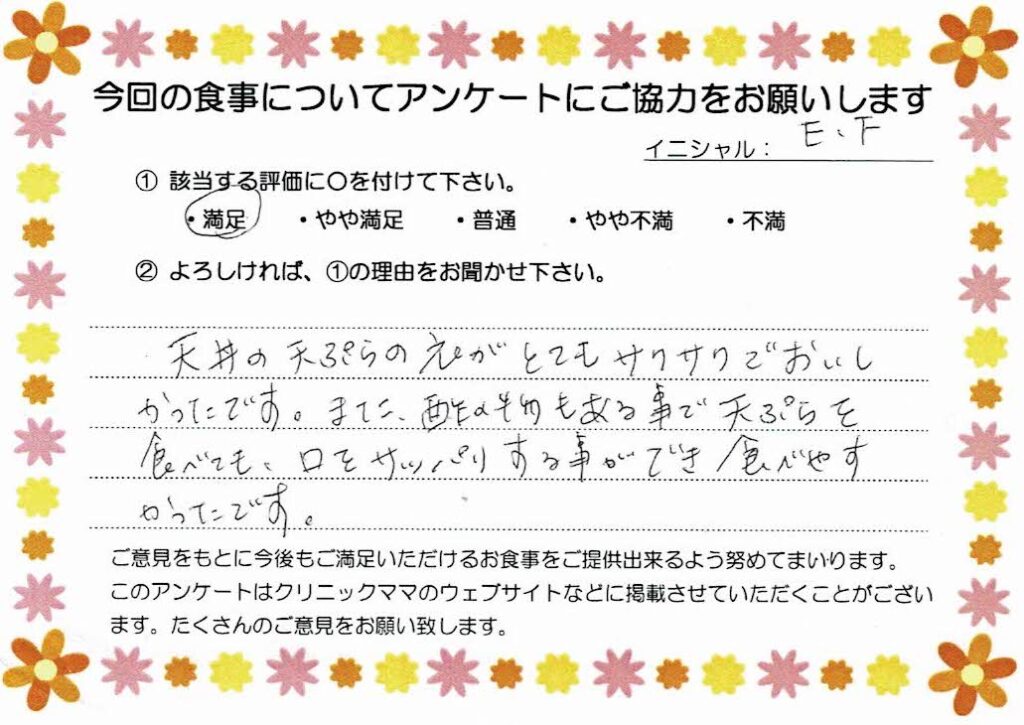 今回の食事についてアンケートにご協力をお願いします
イニシャル： E、F
① 該当する評価に〇を付けて下さい。
・満足 ・やや満足 ・普通 ・やや不満 ・不満
② よろしければ、①の理由をお聞かせ下さい。
天丼の天ぷらのえびがとてもサクサクでおいし
かったです。また、酢の物もある事で天ぷらを
食べても、口をサッパリする事ができ食べやす
かったです。
ご意見をもとに今後もご満足いただけるお食事をご提供出来るよう努めてまいります。
このアンケートはクリニックママのウェブサイトなどに掲載させていただくことがござい
ます。たくさんのご意見をお願い致します。